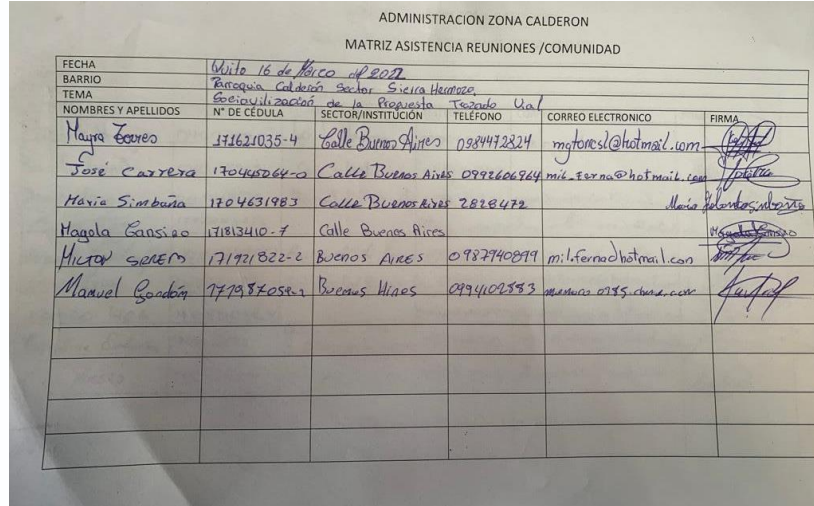 ADMINISTRACION ZONA CALDERON
MATRIZ ASISTENCIA REUNIONES /COMUNIDAD
FECHA Quito 16 de Marzo del 2022
BARRIO Parroquia Calderón Sector Sierra Hermoza.
TEMA Sociavilización de la Propuesta Trazado Vial
NOMBRES Y APELLIDOS N° DE CÉDULA SECTOR/INSTITUCIÓN TELÉFONO CORREO ELECTRONICO FIRMA
Mayra Torres 171621035-4 Calle Buenos Aires 0984472824 mgtorresl@hotmail.com
José Carrera 170445064-0 Calle Buenos Aires 0992606964 mil_ferna@hotmail.com
Maria Simbaña 1704631983 Calle Buenos Aires 2828472 María
Magola Cansino 171813410-7 Calle Buenos Aires Magola Cansino
MILTON 171921822-2 BUENOS AIRES 0987940899 mil.fernad hotmail.con
Manuel Buenos Aires 0994102883